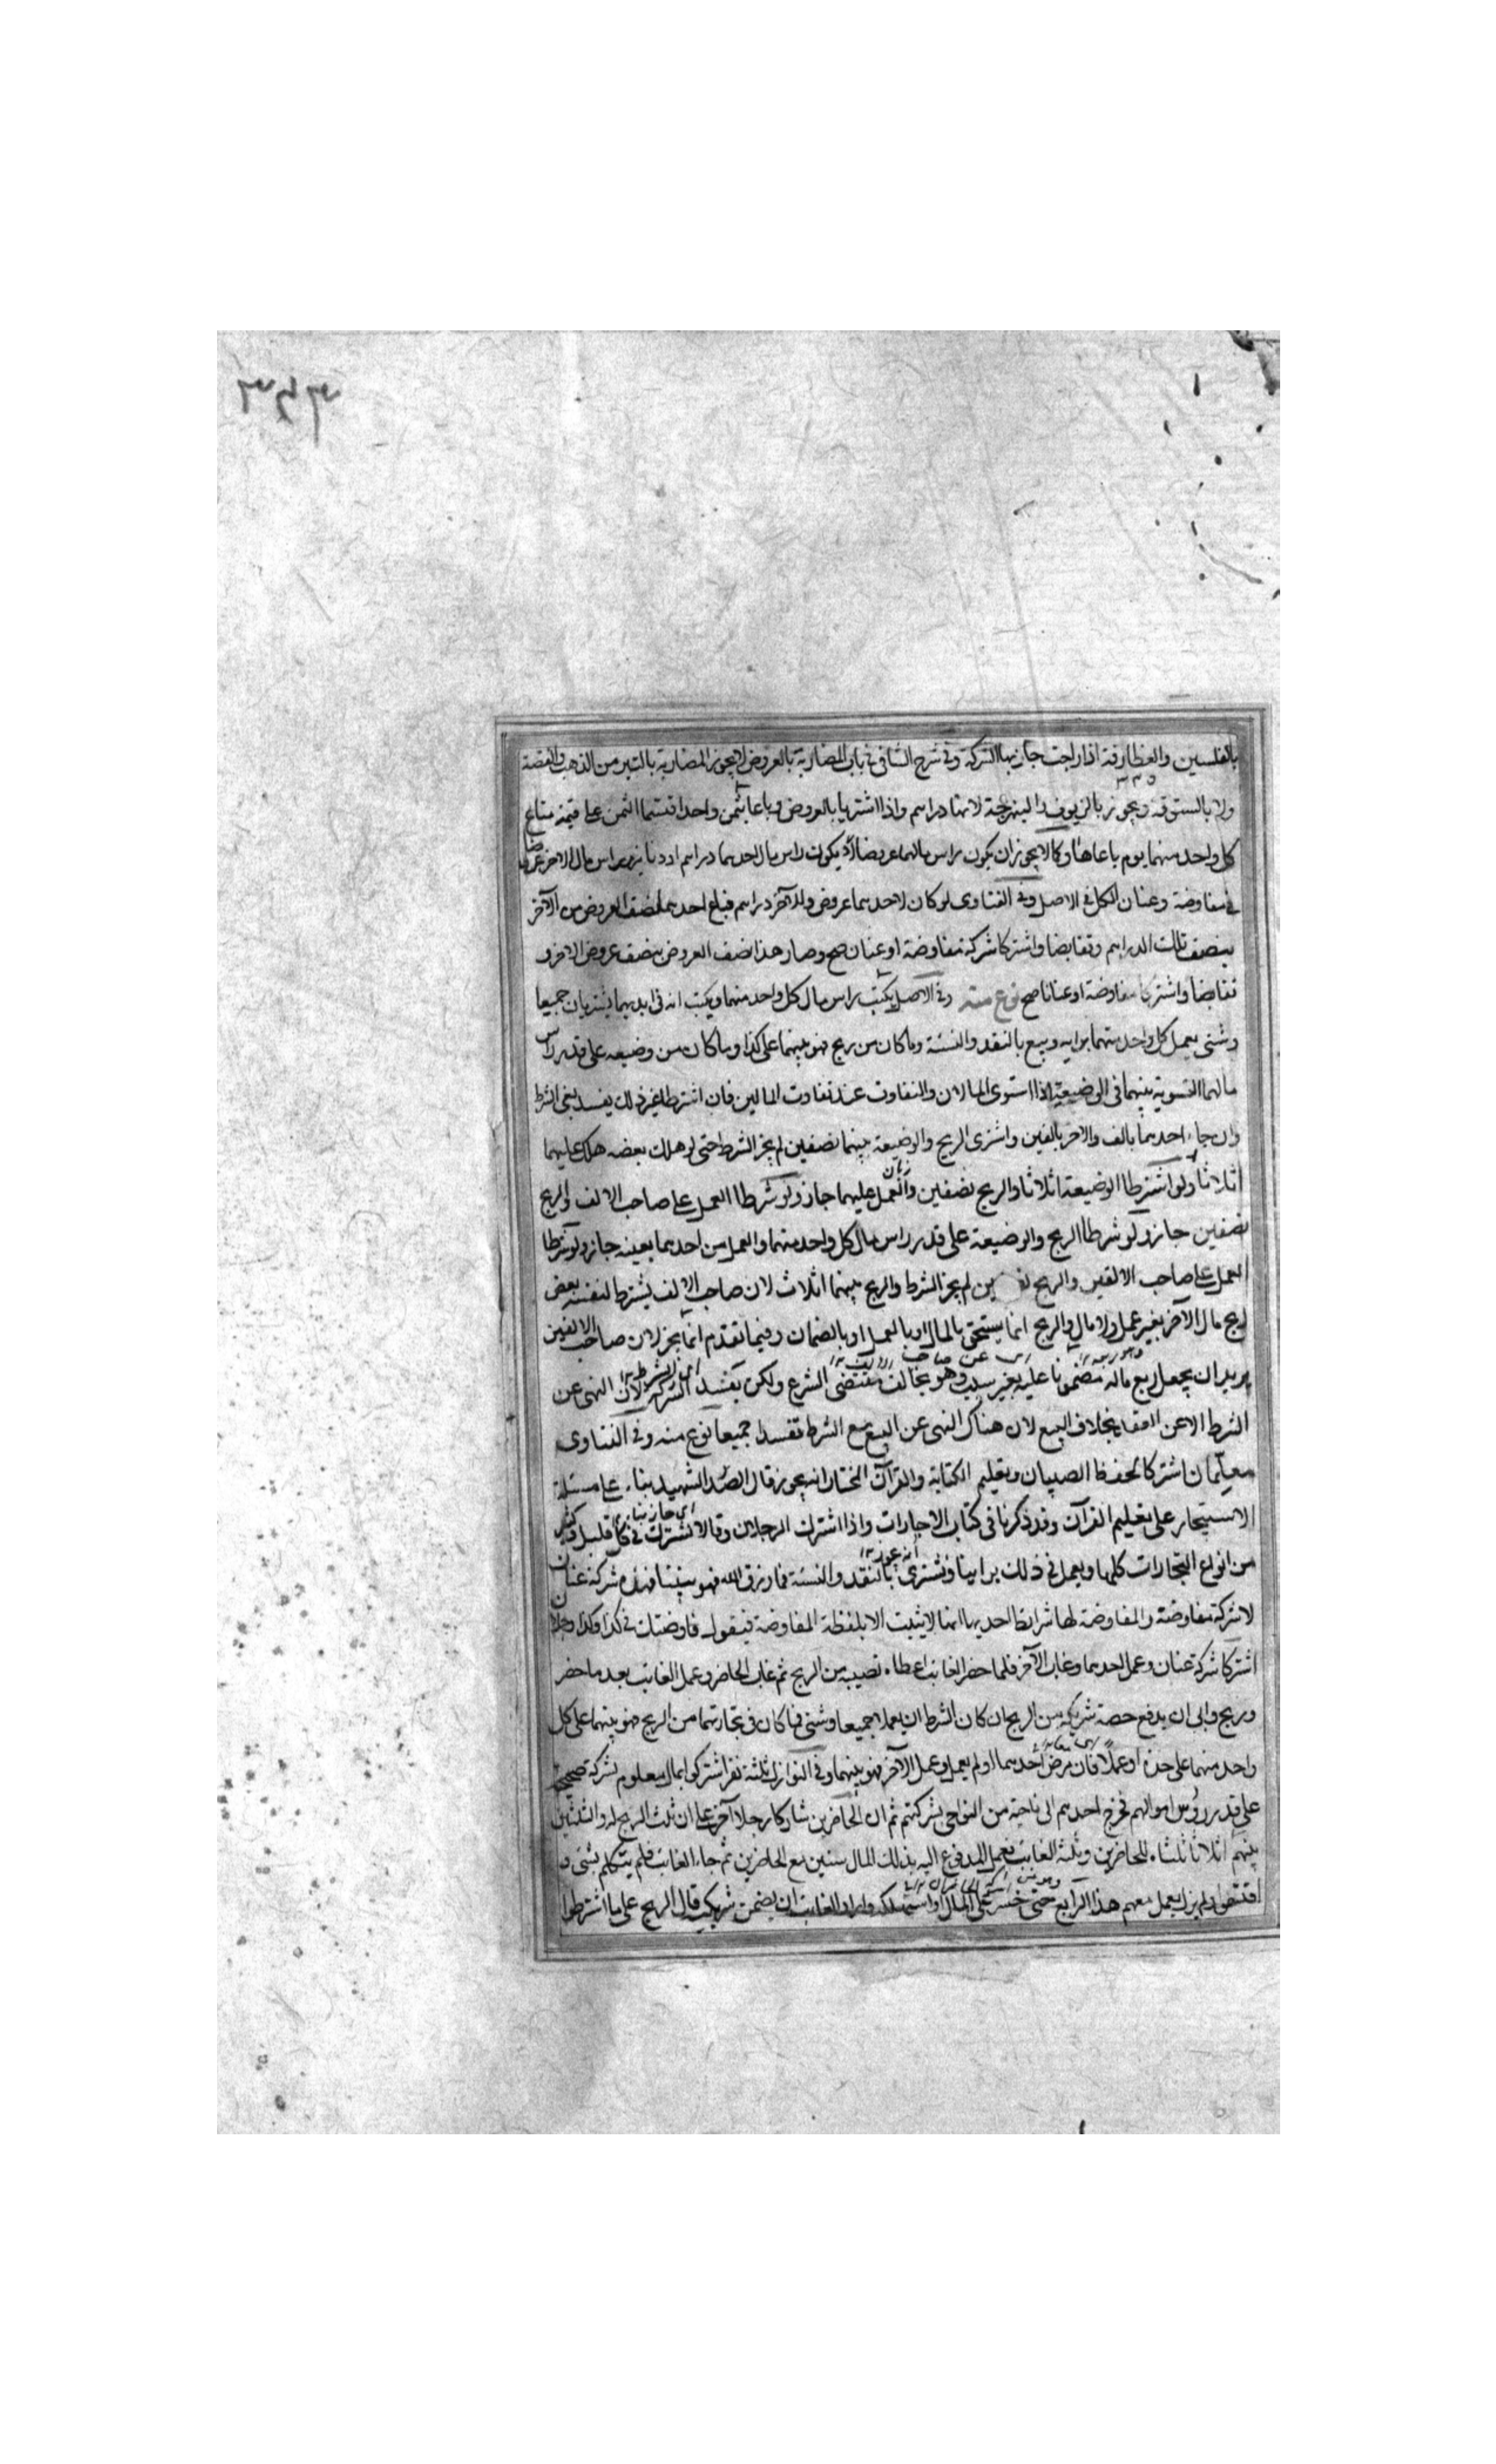 ٣٤٣
بالفلسين والعطارفة اذا راجت جاز بها الشركة وفى شرح الشافى فى باب المضاربة بالعروض لا يجوز المضاربة بالتبر من الذهب والفضة
ولا بالستوقة ويجوز بالزيوف والبنهرجة لانها دراهم واذا اشتريا بالعروض وباعا بثمن واحد اقتسما الثمن على قيمة متاع
كل واحد منهما يوم باعاه وكما لا يجوز ان يكون راس مالهما عروضا لا يكون راس مال احدهما دراهم او دنانير وراس مال الاخر عروضا
فى مفاوضة وعنان الكل فى الاصل وفى الفتاوى لو كان لاحدهما عروض وللآخر دراهم فباع احدهما نصف العروض من الآخر
بنصف تلك الدراهم وتقابضا واشتركا شركة مفاوضة او عنان صح وصار هذا نصف العروض بنصف عروض الاخر و
تقابضا واشتركا مفاوضة او عنانا صح نوع منه وفى الاصل يكتب راس مال كل واحد منهما ويكتب انه فى ايديهما يشتريان جميعا
وشتى يعمل كل واحد منهما برايه ويبيع بالنقد والنسئة وما كان من ربح فهو بينهما على كذا وما كان من وضيعه على قدر راس
مالهما التسوية بينهما فى الوضيعة اذا استوى المالان والتفاوت عند تفاوت المالين فان اشترطا غير ذلك يفسد يعنى الشرط
وان جاء احدهما بالف والاخر بالفين واشترى الربح والوضيعة بينهما نصفين لم يجز الشرط حتى لو هلك بعضه هلك عليهما
اثلاثا ولو اشترطا الوضيعة اثلاثا والربح نصفين والعمل عليهما جاز ولو شرطا العمل على صاحب الالف والربح
نصفين جاز ولو شرطا الربح والوضيعة على قدر راس مال كل واحد منهما والعمل من احدهما بعينه جاز ولو شرطا
العمل على صاحب الالفين والربح نصفين لم يجز الشرط والربح بينهما اثلاث لان صاحب الالف يشترط لنفسه بعض
ربح مال الآخر بغير عمل ولا مال والربح انما يستحق بالمال او بالعمل او بالضمان وفيما تقدم انما يجز لان صاحب الالفين
يريد ان يجعل ربع ماله مضمونا عليه بغير سبب وهو يخالف مقتضى الشرع ولكن يفسد الشركة لان النهى عن
الشرط لا عن العقد بخلاف البيع لان هناك النهى عن البيع مع الشرط تفسدا جميعا نوع منه وفى الفتاوى
معلمان اشتركا لحفظ الصبيان وتعليم الكتابة والقرآن المختار انه يجوز قال الصدر الشهيد بناء على مسئلة
الاستيجار على تعليم القرآن وقد ذكرنا فى كتاب الاجارات واذا اشترك الرجلان وقالا نشترك فى كل قليل وكثير
من انواع التجارات كلها ويعمل فى ذلك براينا ونشترى بالنقد والنسئة فما رزق الله فهو بيننا فهذه شركة عنان
لا شركة مفاوضة والمفاوضة لها شرائط احديها انها لا يثبت الا بلفظة المفاوضة فيقول فاوضتك فى كذا وكذا رجلا
اشتركا شركة عنان وعمل احدهما وغاب الآخر فلما حضر الغائب اعطاه نصيبه من الربح ثم غاب الحاضر وعمل الغائب بعد ما حضر
وربح وابى ان يدفع حصة شريكه من الربح ان كان الشرط ان يعملا جميعا وشتى فما كان فى تجارتهما من الربح فهو بينهما على كل
واحد منهما على حدة او عملا فان مرض احدهما او لم يعمل وعمل الآخر فهو بينهما وفى النوازل ثلثة نفر اشتركوا بمال معلوم شركة صحيحة
على قدر رؤس اموالهم فخرج احدهم الى ناحية من النواحى بشركتهم ثم ان الحاضرين شاركا رجلا آخر على ان ثلث الربح له والثلثين
بينهم اثلاثا ثلثاه للحاضرين وثلثه الغائب فعمل المدفوع اليه بذلك المال سنين مع الحاضرين ثم جاء الغائب فلم يتكلم بشىء و
اقتسموا ولم يزل يعمل معهم هذا الرابع حتى خسر على المال او استهلكه واراد الغائب ان يضمن شريكيه قال الربح على ما اشترطوا